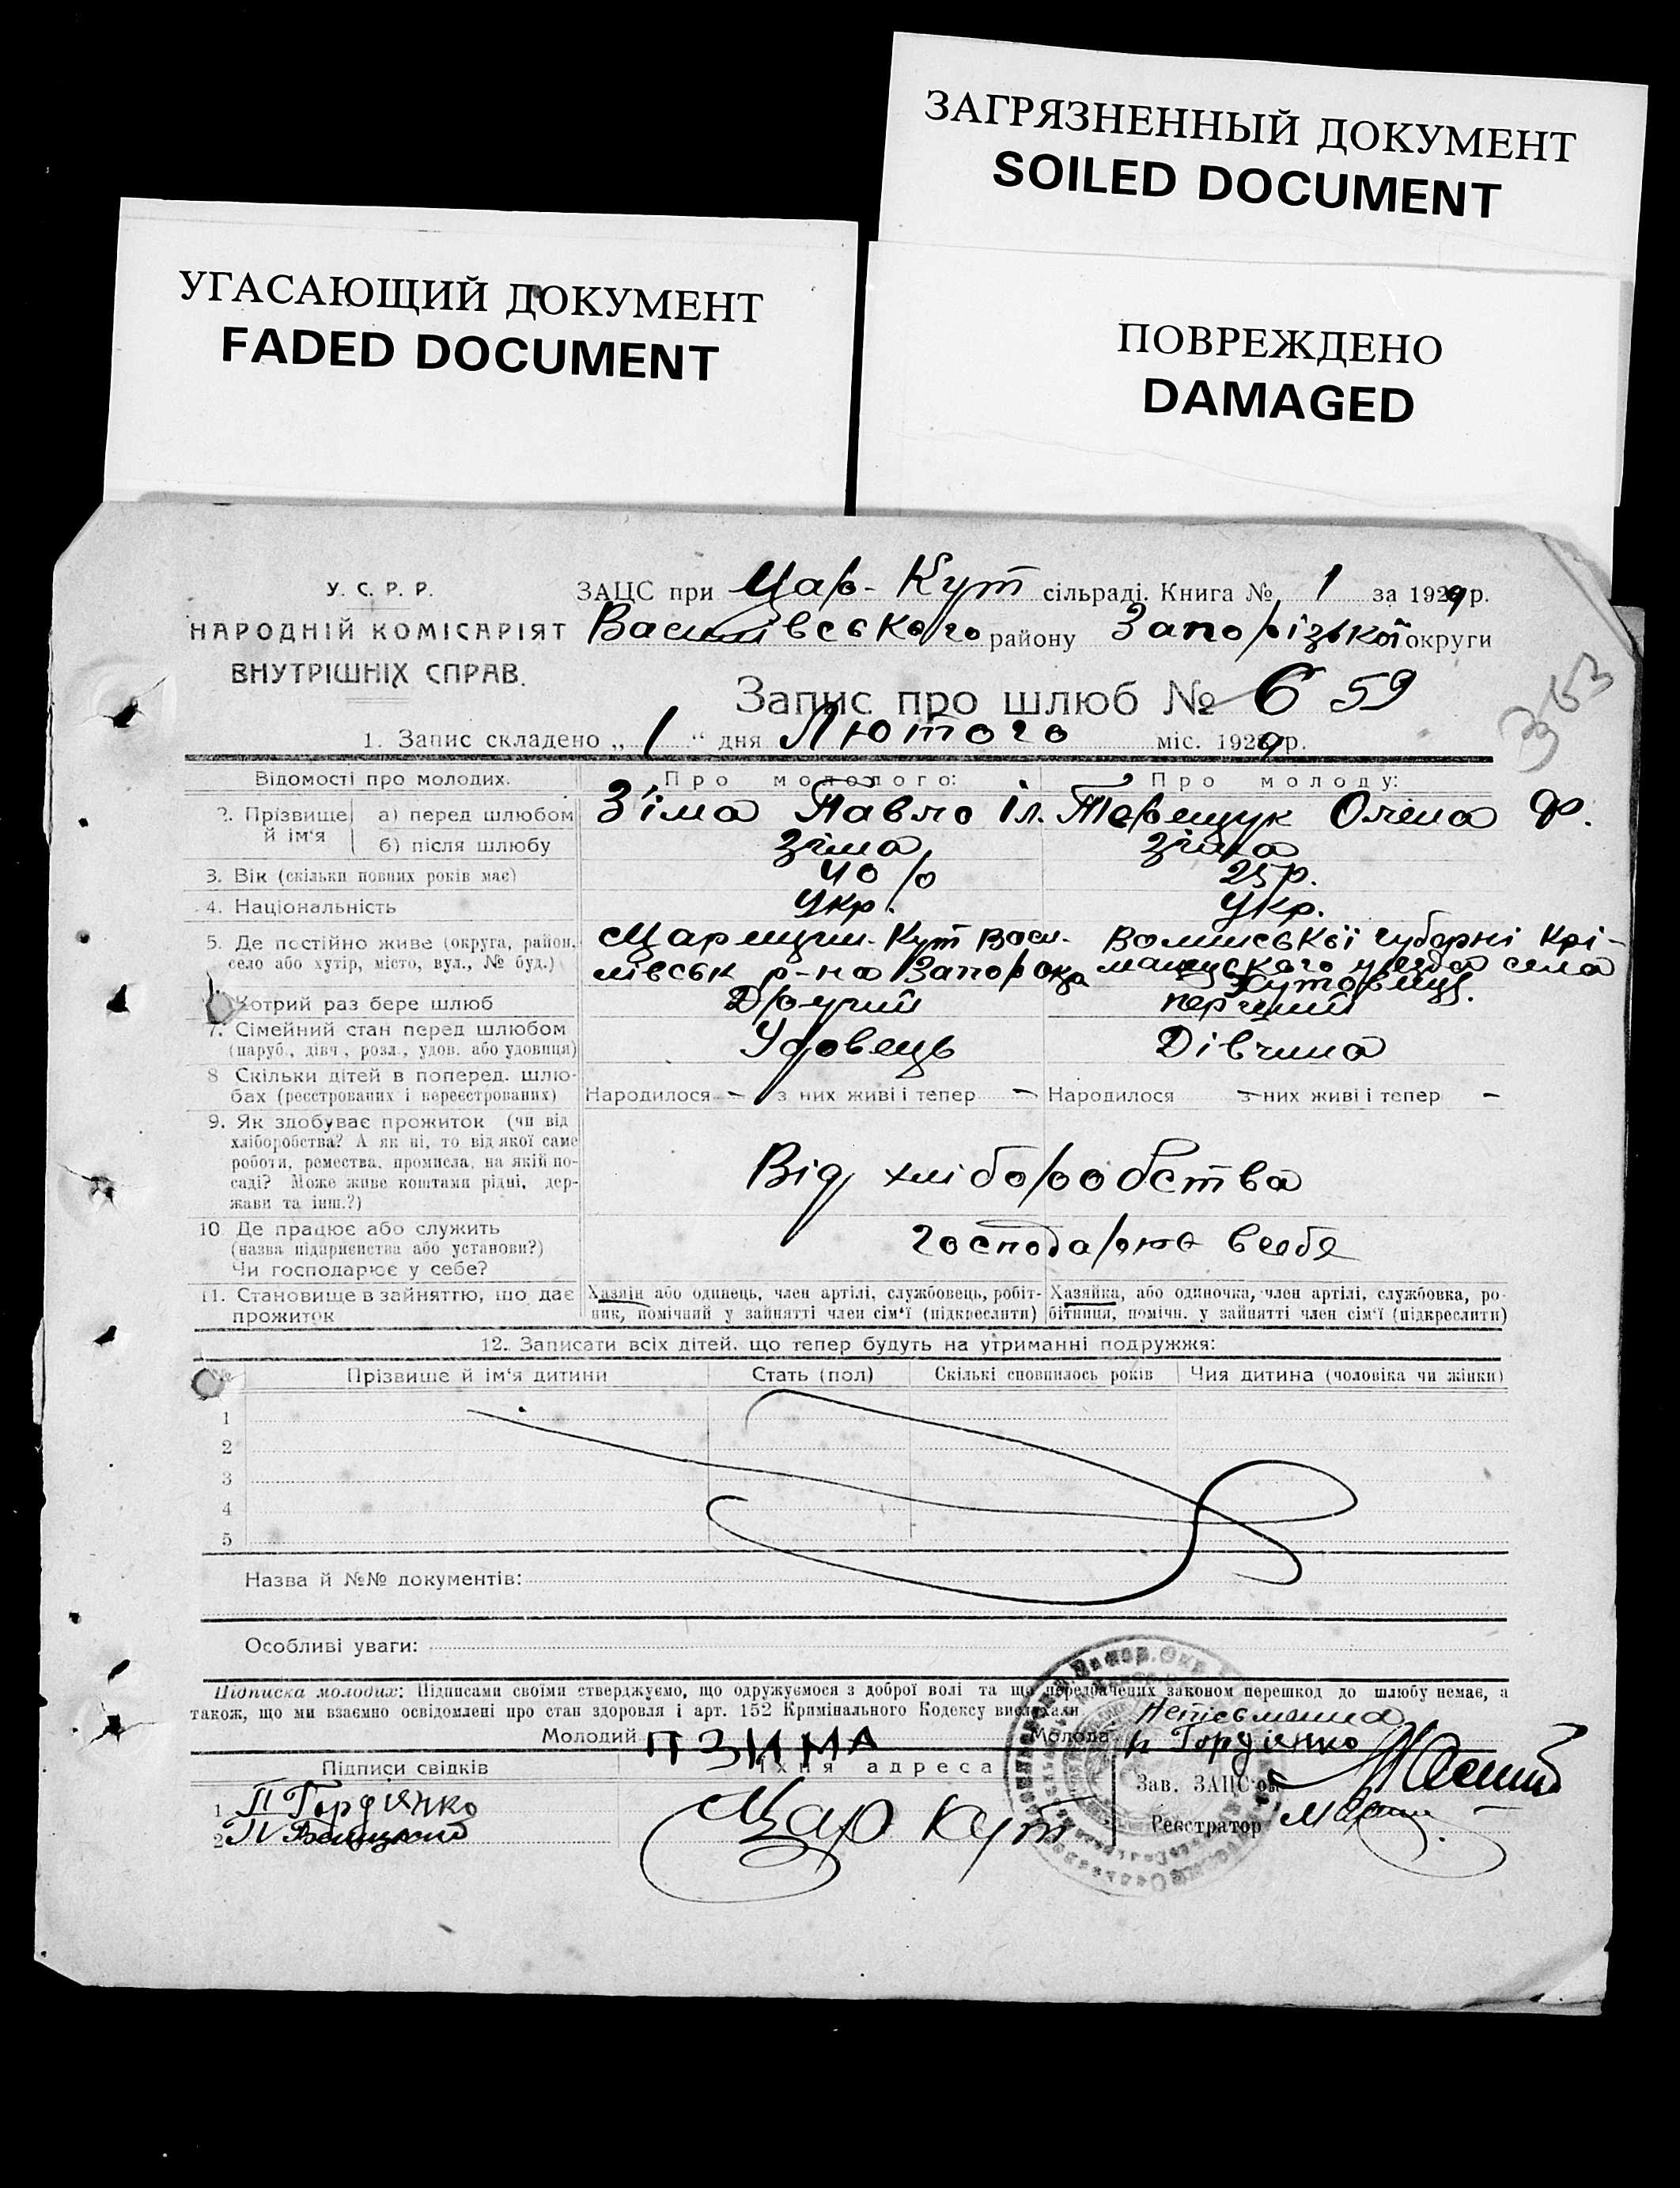 ЗАГРЯЗНЕННЫЙ ДОКУМЕНТ
SOILED DOCUMENT
УГАСАЮЩИЙ ДОКУМЕНТ
FADED DOCUMENT
ПОВРЕЖДЕНО
DAMAGED
У. С. Р. Р.
НАРОДНІЙ КОМІСАРІЯТ
ВНУТРІШНІХ СПРАВ.
ЗАЦС при Цар-Кут сільраді. Книга № 1 за 1929 р.
Василівського району Запорізької округи
Запис про шлюб № 6 59
353
1. Запис складено „ 1 “ дня Лютого міс. 1929 р.
Відомості про молодих. Про молодого: Про молоду:
2. Прізвище й ім'я а) перед шлюбом Зіма Павло Іл. Терещук Олена Ф.
б) після шлюбу Зіма Зіма
3. Вік (скільки повних років має) 40 р 25 р.
4. Національність Укр. Укр.
5. Де постійно живе (округа, район, Царицин. Кут Васи- Волинської губерні Крі-
село або хутір, місто, вул., № буд.) лівськ р-на Запор окр манецкого уезда села
Кутовищ.
Котрий раз бере шлюб Другий перший
7. Сімейний стан перед шлюбом Удовець Дівчина
(паруб., дівч., розл., удов. або удовиця)
8 Скільки дітей в поперед. шлю-
бах (реєстрованих і нереєстрованих) Народилося - з них живі і тепер - Народилося з них живі і тепер -
9. Як здобуває прожиток (чи від
хліборобства? А як ні, то від якої саме
роботи, ремества, промисла, на якій по-
саді? Може живе коштами рідні, дер-
жави та інш.?)
Від хліборобства
10 Де працює або служить
(назва підприємства або установи?)
Чи господарює у себе?
господарює всебе
11. Становище в зайняттю, що дає прожиток
Хазяїн або одинець, член артілі, службовець, робіт-
ник, помічний у зайнятті член сім'ї (підкреслити)
Хазяйка, або одиночка, член артілі, службовка, ро-
бітниця, помічн. у зайнятті член сім'ї (підкреслити)
12. Записати всіх дітей. що тепер будуть на утриманні подружжя:
Прізвище й ім'я дитини Стать (пол) Скількі сповнилось років Чия дитина (чоловіка чи жінки)
1
2
3
4
5
Назва й №№ документів:
Особливі уваги:
Підписка молодих: Підписами своїми стверджуємо, що одружуємося з доброї волі та що передбачених законом перешкод до шлюбу немає, а
також, що ми взаємно освідомлені про стан здоровля і арт. 152 Кримінального Кодексу вислухали
Молодий П ЗИМА Молода Неписьменна
Гордієнко
Підписи свідків Їхня адреса Зав. ЗАЦС'ом
1 П Гордієнко
2 Цар Кут Реєстратор